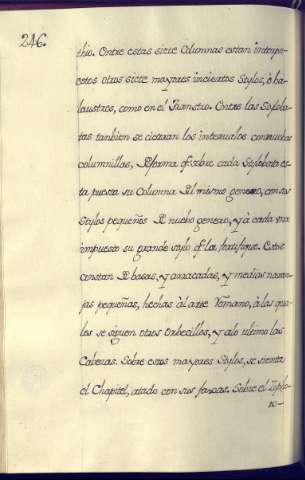 246.
thio. Entre estas siete Columnas estan interpu-
estos otros siete mayores inciertos Stylos, ò ba-
laustres, como en el Parnstio. Entre las Stylola-
tas tanbien se cierran los intervalos con muchas
columnillas, de forma q̃ sobre cada Stylobata es-
ta puesta su Columna del mismo genero, con sus
Stylos pequeños de nuebo genero, y à cada una
impuesto su grande stylo q̃ la fortifique. Estos
constan de basas, y arracadas, y medias naran-
jas pequeñas, hechas àl arte Termano, à las qua-
les se siguen otros Cabecillos, y alo ultimo las
Cabezas. Sobre estos mayores Stylos, se sienta
el Chapitel, atado con sus faxas. Sobre el Zopho-
ro